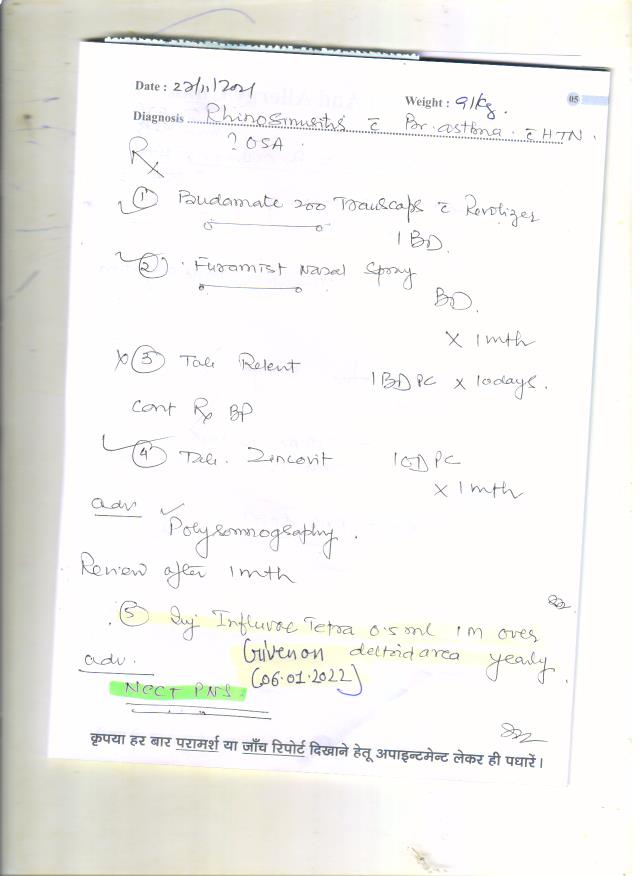 Date : 22/11/2021
Weight : 91kg.
05
Diagnosis Rhinosinusitis c̄ Br. asthma. c̄ HTN.
? OSA.
Rx
① Budamate 200 Transcaps c̄ Revolizer
1 BD.
② . Furamist Nasal Spray
BD.
X 1 mth
③ Tab Relent 1 BD PC x 10days.
Cont Rx BP
④ Tab. Zincovit 1 OD PC
X 1 mth
adv ✓
Polysomnography.
Review after 1 mth
⑤ Inj Influvac Tetra 0.5 ml IM over
Given on deltoid area yearly
adv. (06.01.2022)
NCCT PNS.
कृपया हर बार परामर्श या जाँच रिपोर्ट दिखाने हेतू अपाइन्टमेन्ट लेकर ही पधारें।